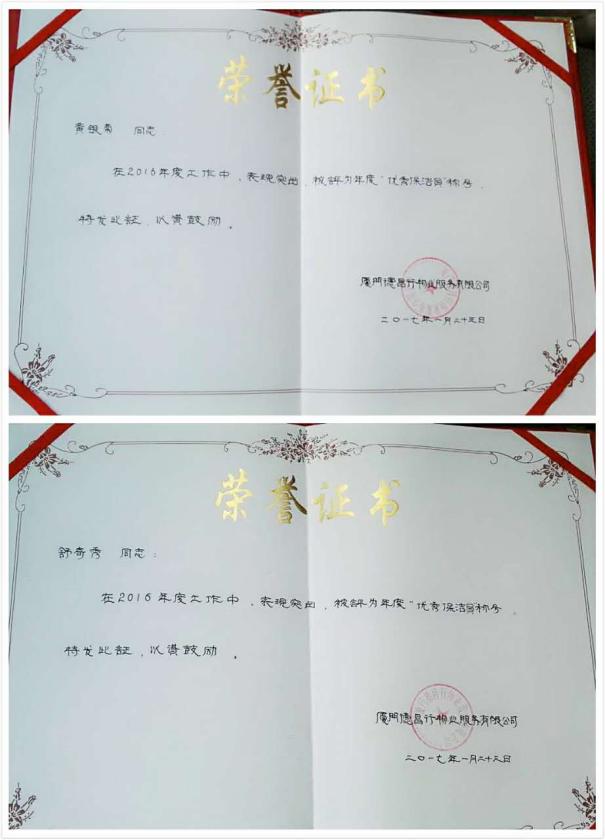 荣誉证书
黄银菊 同志:
在2016年度工作中,表现突出,被评为年度“优秀保洁员”称号,
特发此证,以资鼓励。
厦门德昌行物业服务有限公司
二〇一七年一月二十三日
荣誉证书
舒奇秀 同志:
在2016年度工作中,表现突出,被评为年度“优秀保洁员”称号,
特发此证,以资鼓励。
厦门德昌行物业服务有限公司
二〇一七年一月二十三日